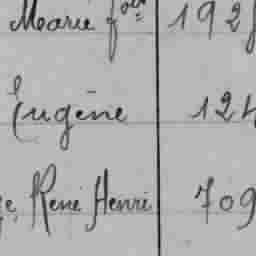 Marie fçoise 192
Eugène 124
René Henri 709